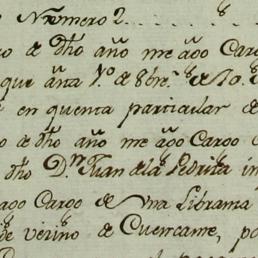 Numero 2
o de dho año me ago Cargo
que anta 1º de 8bre de
en quenta particular de
o de dho año me ago Cargo
dho Dn Juan de la Pedriza
ago Cargo de una Librama
de vecino de Cuencame, po